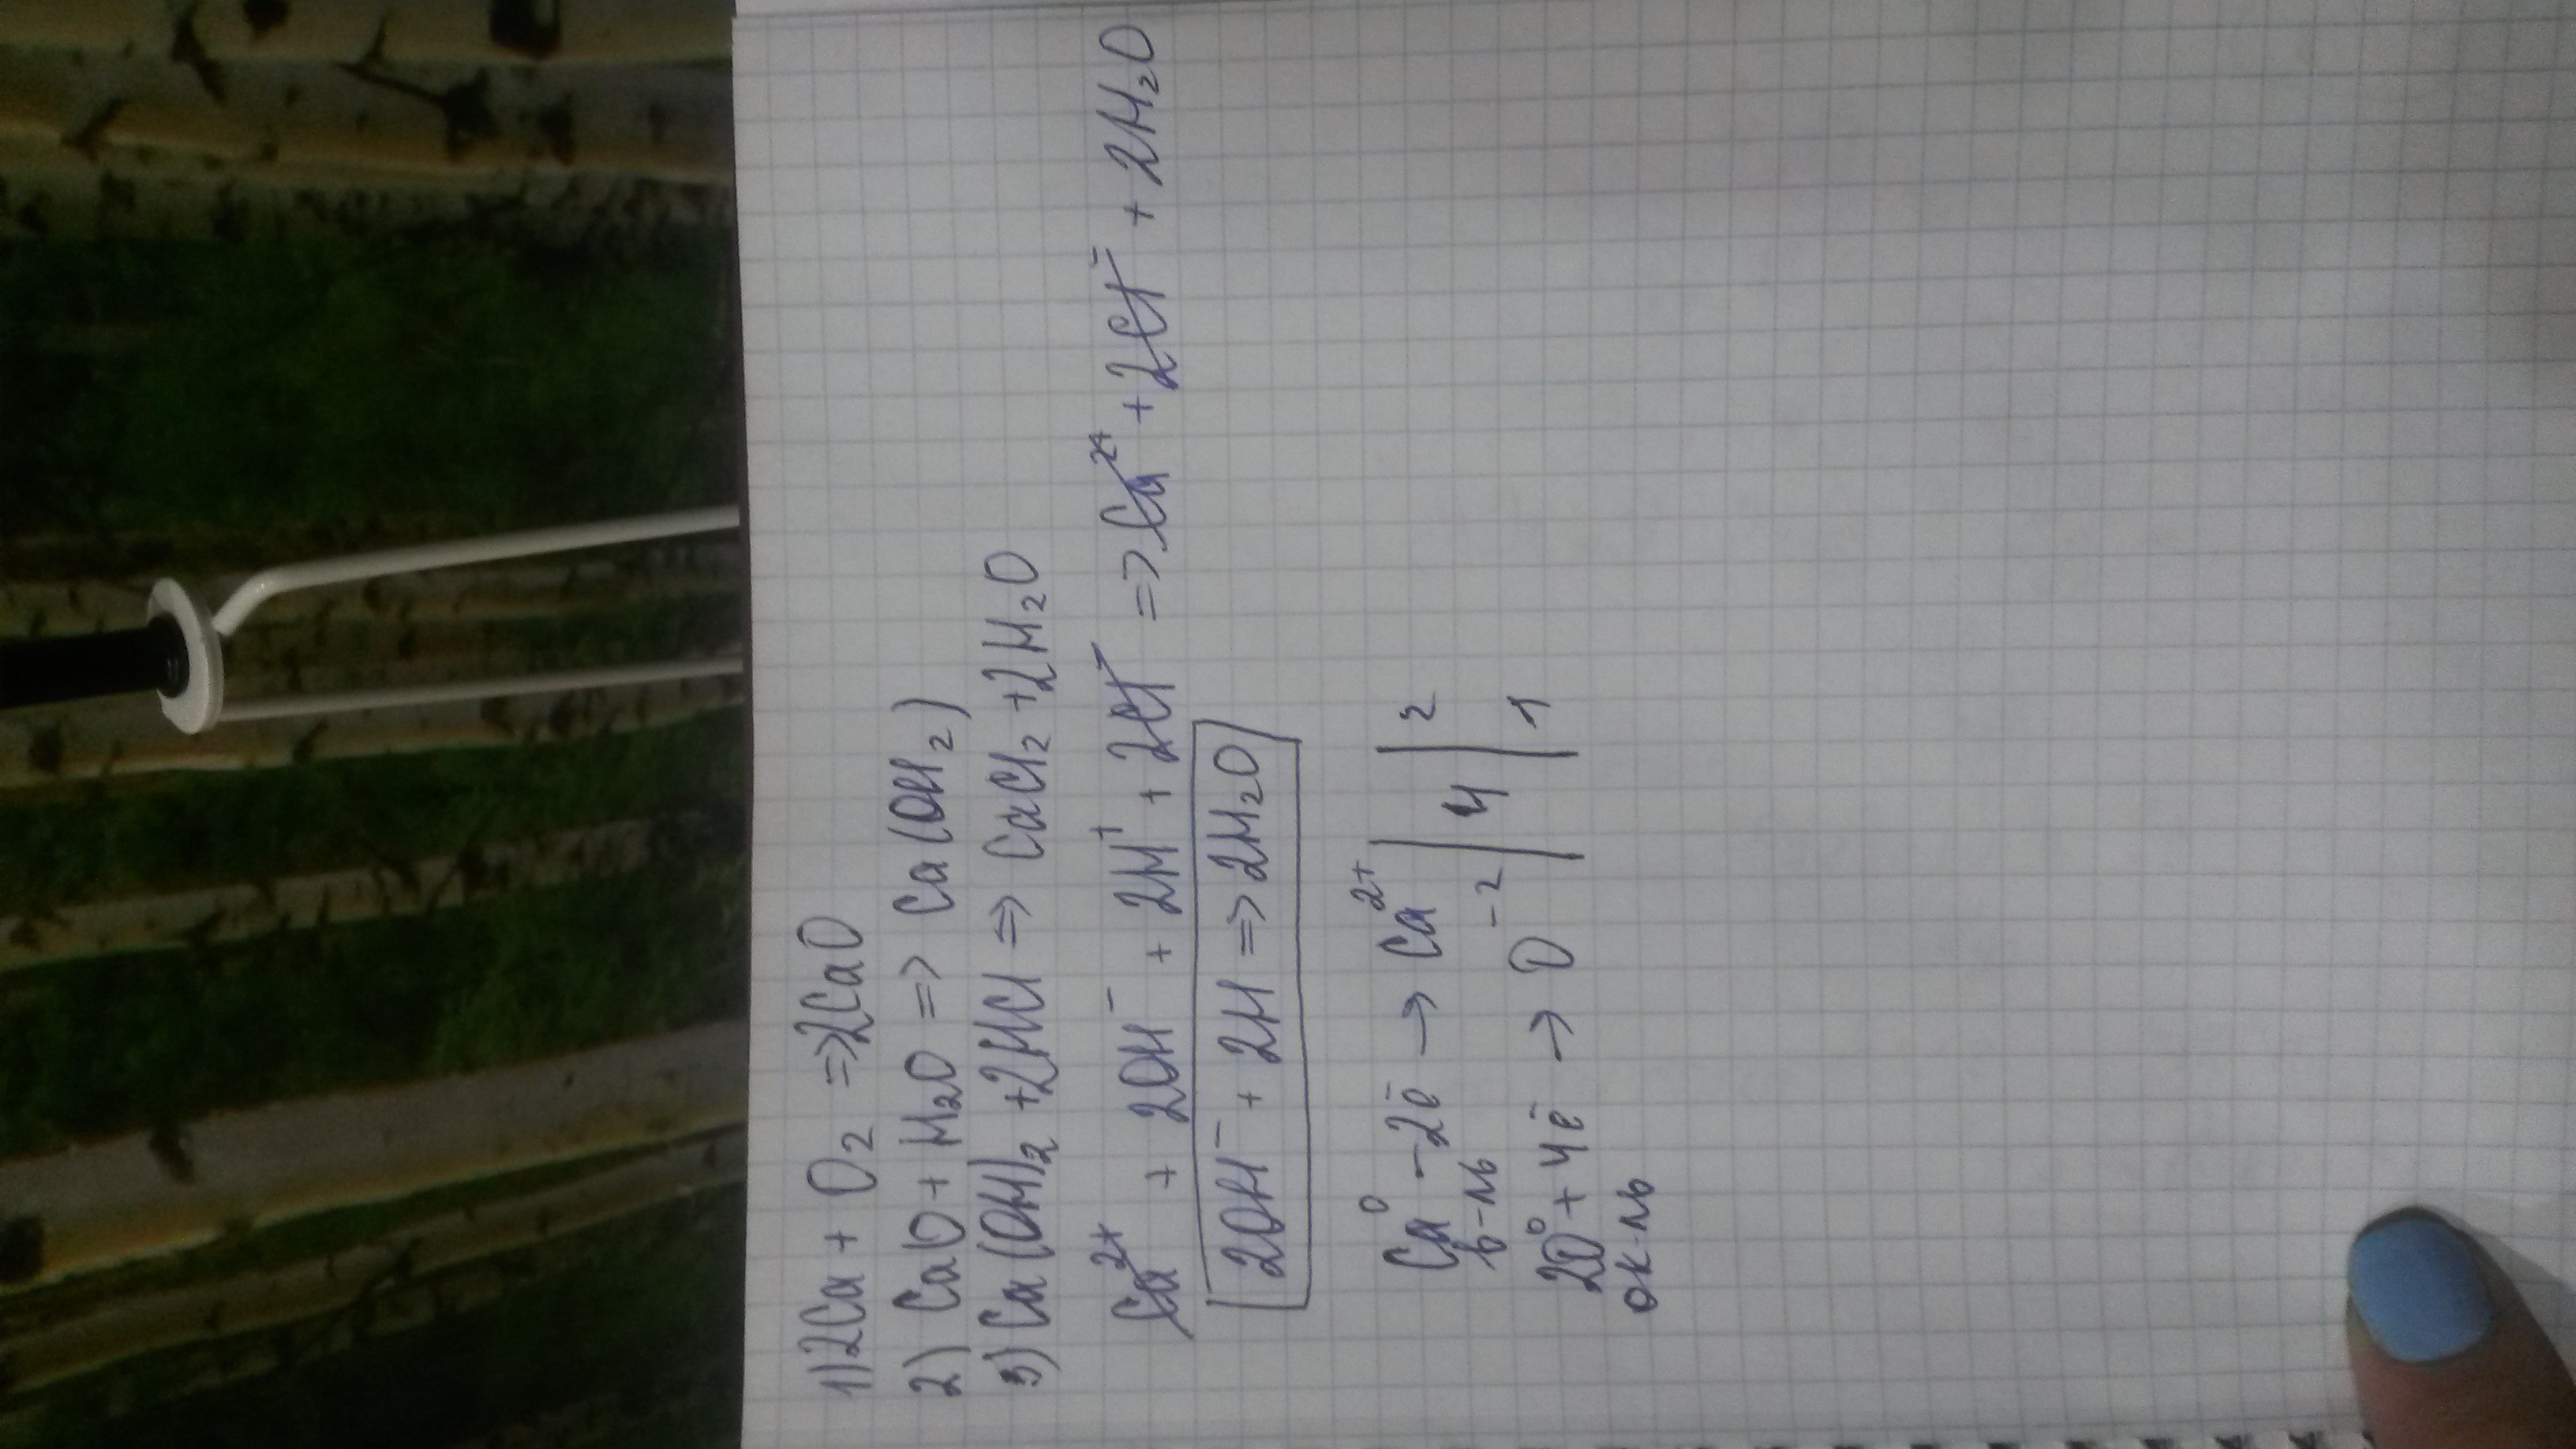 1) 2Ca + O₂ => 2CaO
2) CaO + H₂O => Ca(OH₂)
3) Ca(OH)₂ + 2HCl => CaCl₂ + 2H₂O
Ca²⁺ + 2OH⁻ + 2H⁺ + 2Cl⁻ => Ca²⁺ + 2Cl⁻ + 2H₂O
2OH⁻ + 2H => 2H₂O
Ca⁰ - 2ē → Ca²⁺ | | 2
в-ль | 4 |
2O⁰ + 4ē → O⁻² | | 1
ок-ль